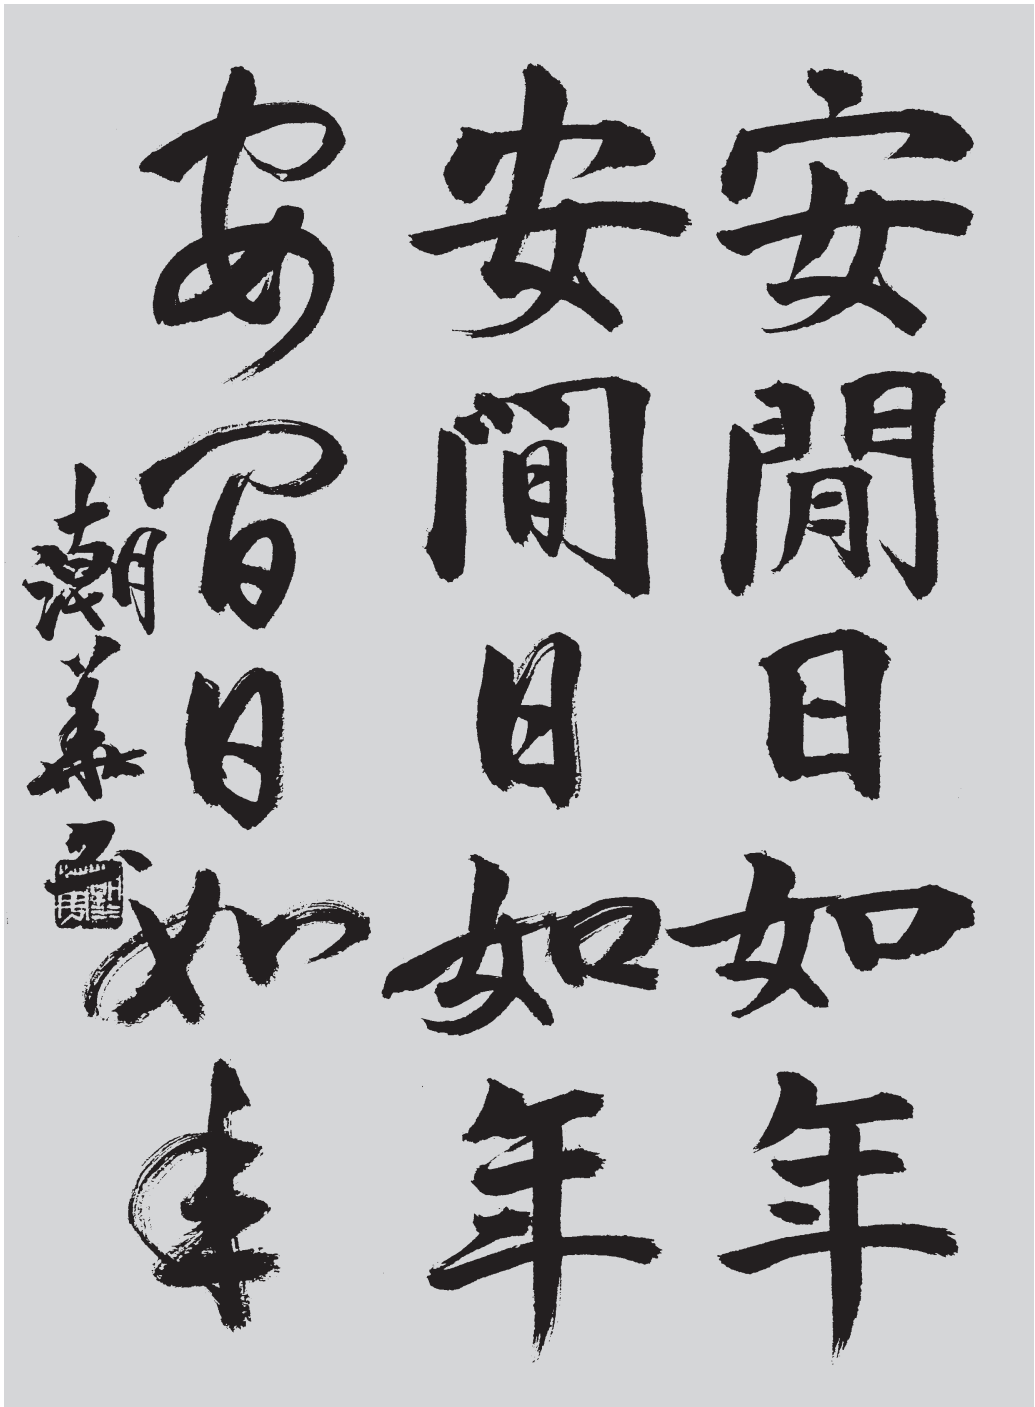 安閒日如年
安間日如年
安間日如年
潮華